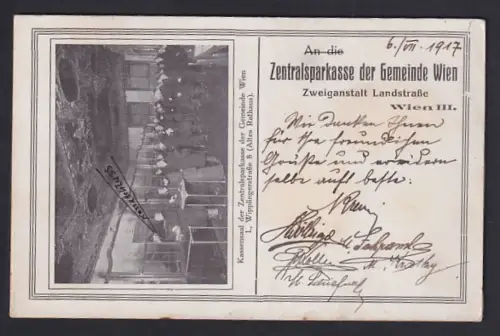 Kassensaal der Zentralsparkasse der Gemeinde Wien
I., Wipplingerstraße 8 (Altes Rathaus).
6./VII. 1917
An die
Zentralsparkasse der Gemeinde Wien
Zweiganstalt Landstraße
Wien III.
Wir danken Ihnen
für Ihre freundlichen
Grüße und erwidern
selbe aufs beste: